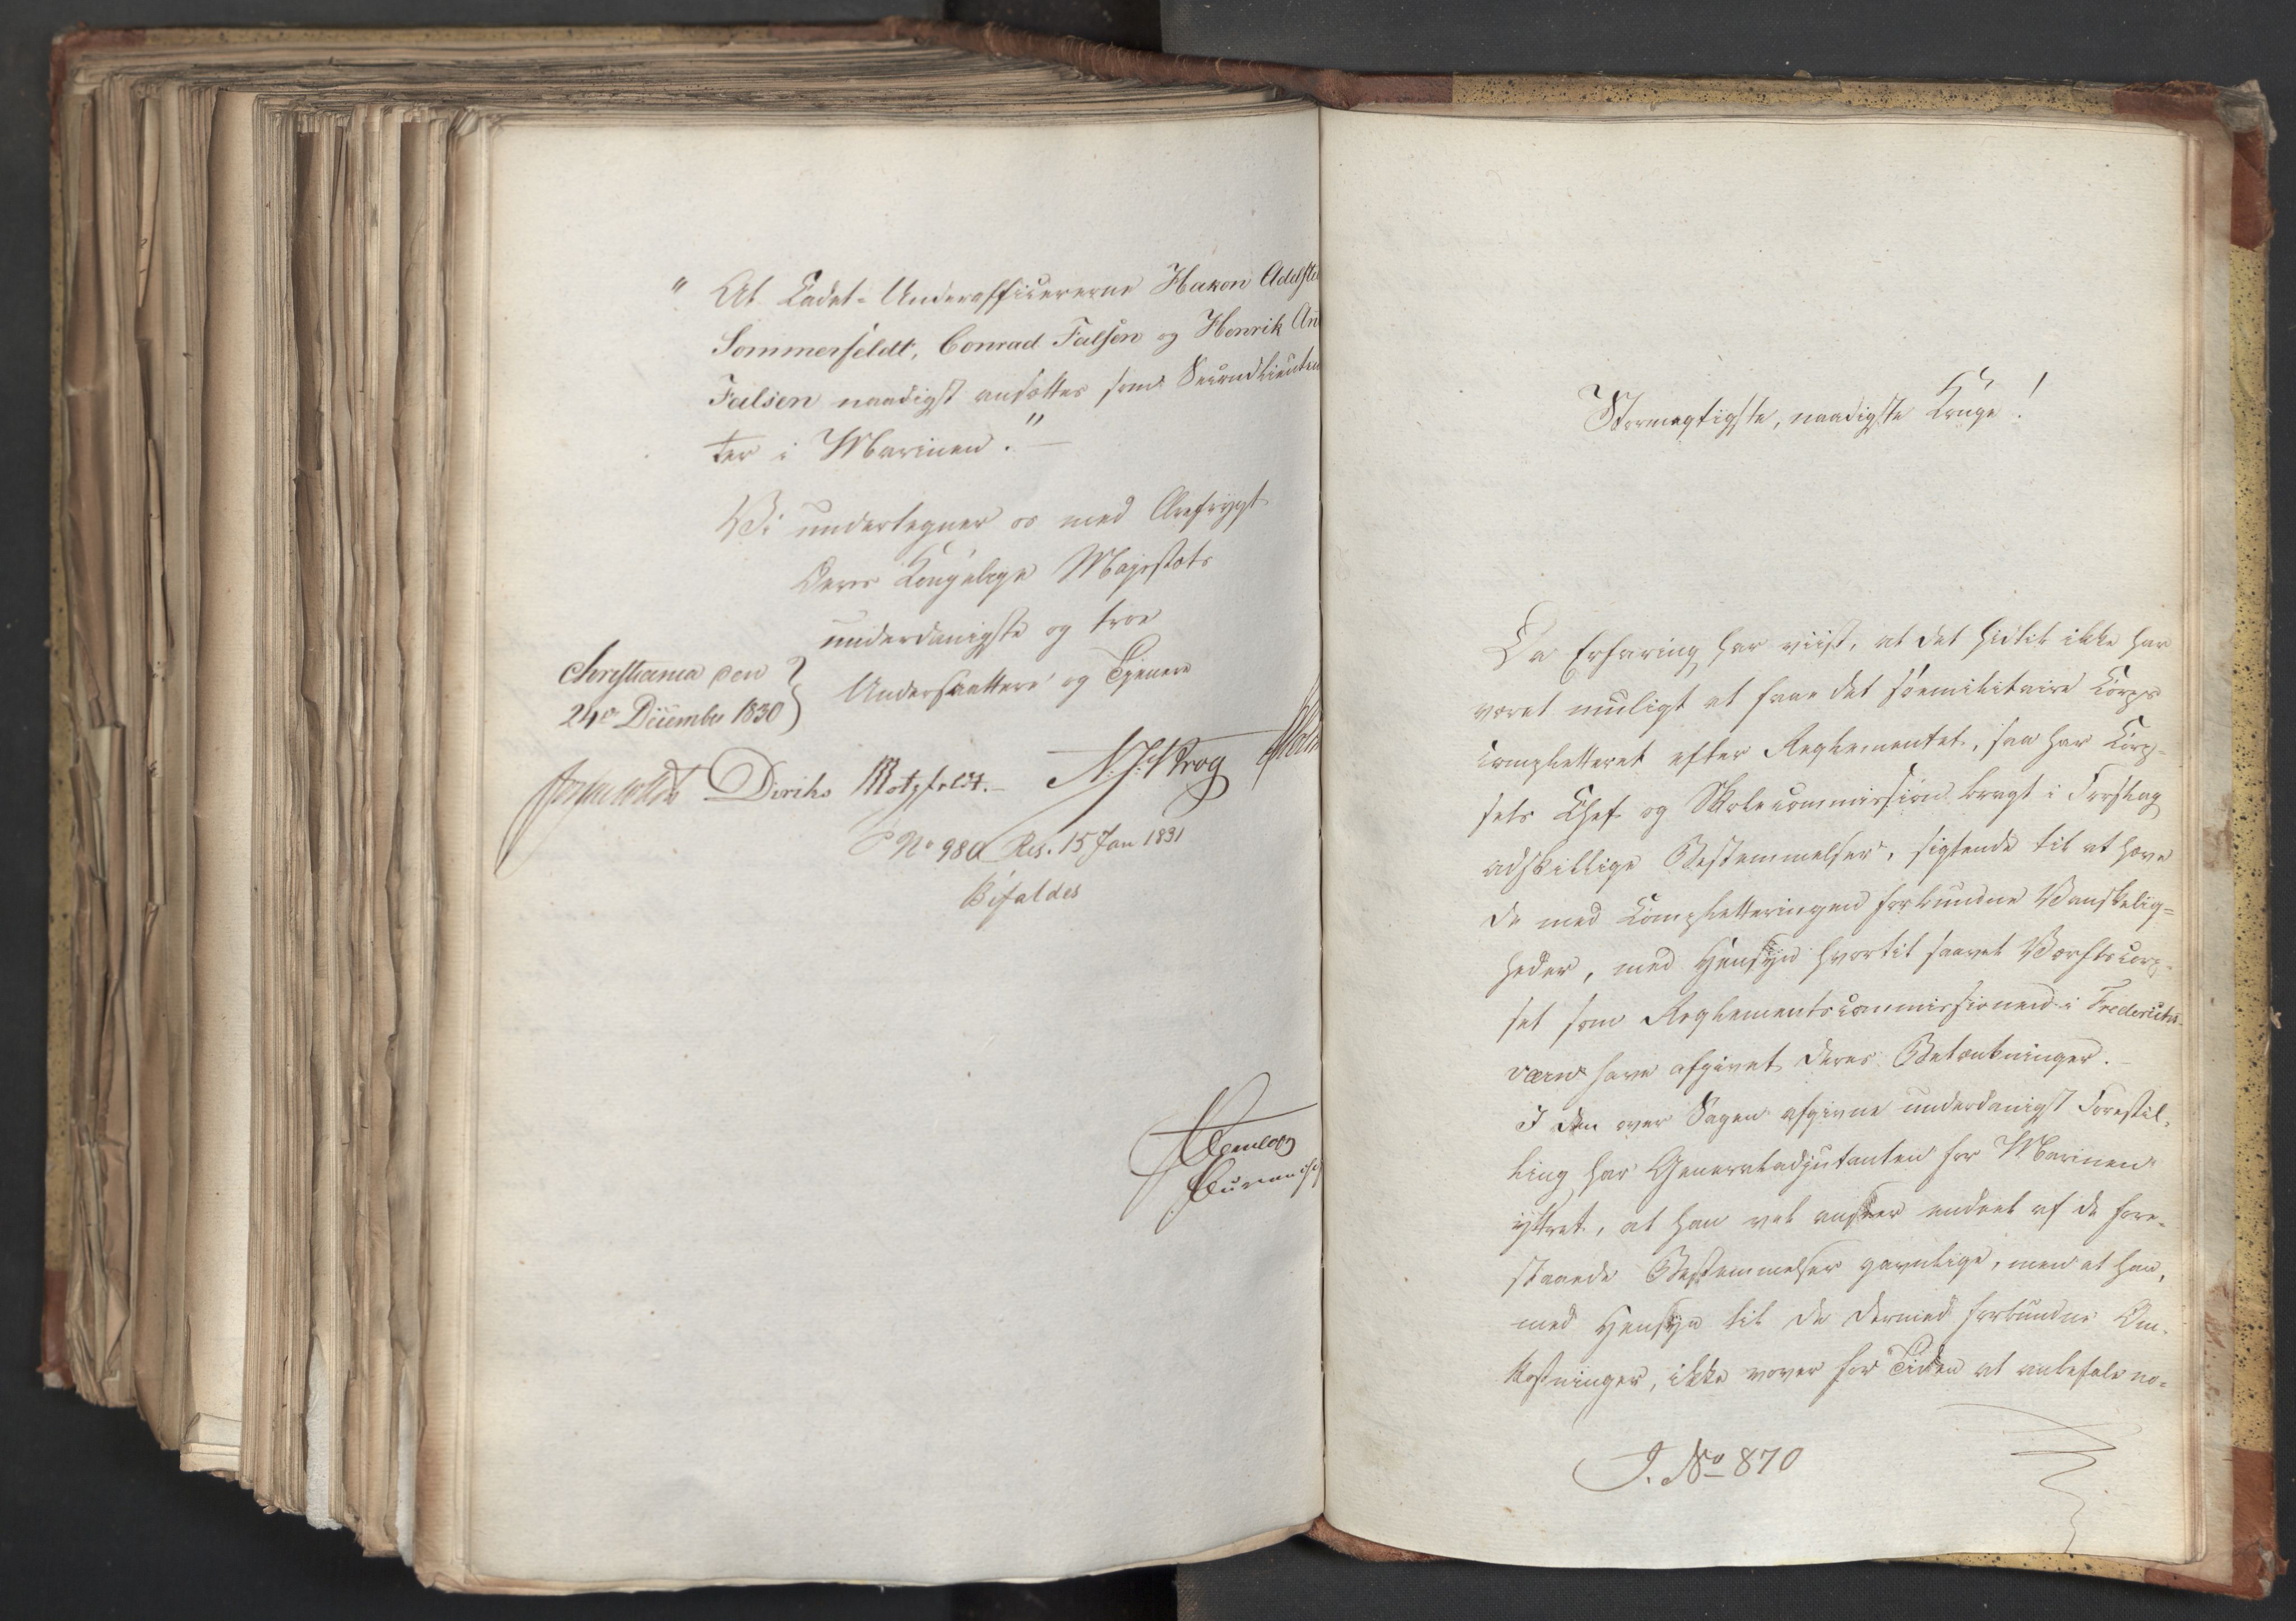 " At Cadet-Underofficererne Hakon Adelste
Sommerfeldt, Conrad Falsen og Henrik An
Falsen naadigst ansættes som Secondlieuten
ter i Marinen." —
Vi undertegner os med Ærefrygt
Deres Kongelige Majestæts
underdanigste og troe
Undersaattere og Tjenere
Christiania den
24de December 1830
Diriks Motzfeldt. N. J. Krog
No 980 Res. 15 Jan 1831
Bifaldes
Stormægtigste, naadigste Konge!
Da Erfaring har viist, at det hidtil ikke har
været muligt at faae det søemilitaire Corps
completteret efter Reglementet, saa har Corp-
sets Chef og Skolecommission bragt i Forslag
adskillige Bestemmelser, sigtende til at hæve
de med Completteringen forbundne Vanskelig=
heder, med Hensyn hvortil saavel Værftscorp-
set som Reglementscommissionen i Frederichs-
værn have afgivet deres Betænkninger. -
I den over Sagen afgivne underdanigst Forestil-
ling har Generaladjutanten for Marinen
yttret, at han vel anseer endeel af de fore-
staaede Bestemmelser gavnlige, men at han,
med Hensyn til de dermed forbundne Om-
kostninger, ikke vover for Tiden at anbefale no-
J. No 870